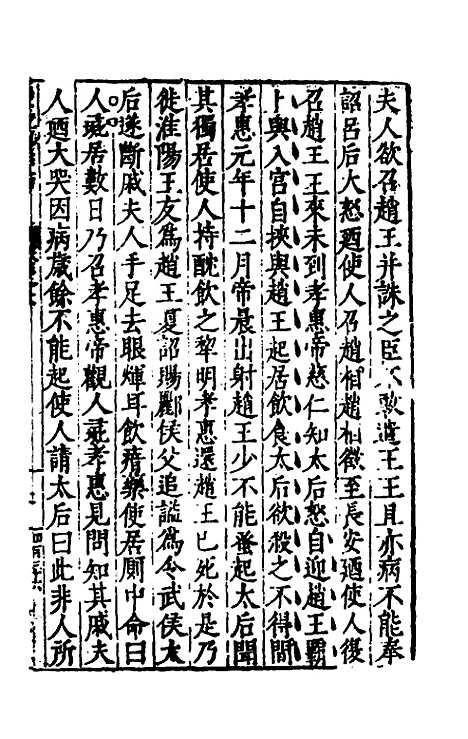 夫人欲召趙王并誅之臣不敢遣王王且亦病不能奉
詔呂后大怒廼使人召趙相趙相徵至長安廼使人復
召趙王王來未到孝惠帝慈仁知太后怒自迎趙王霸
上與入宮自挾與趙王起居飲食太后欲殺之不得間
孝惠元年十二月帝晨出射趙王少不能蚤起太后聞
其獨居使人持酖飲之黎明孝惠還趙王已死於是乃
徙淮陽王友爲趙王夏詔賜酈侯父追謚爲令武侯太
后遂斷戚夫人手足去眼煇耳飲瘖藥使居厠中命曰
人彘居數日乃召孝惠帝觀人彘孝惠見問知其戚夫
人廼大哭因病歲餘不能起使人請太后曰此非人所